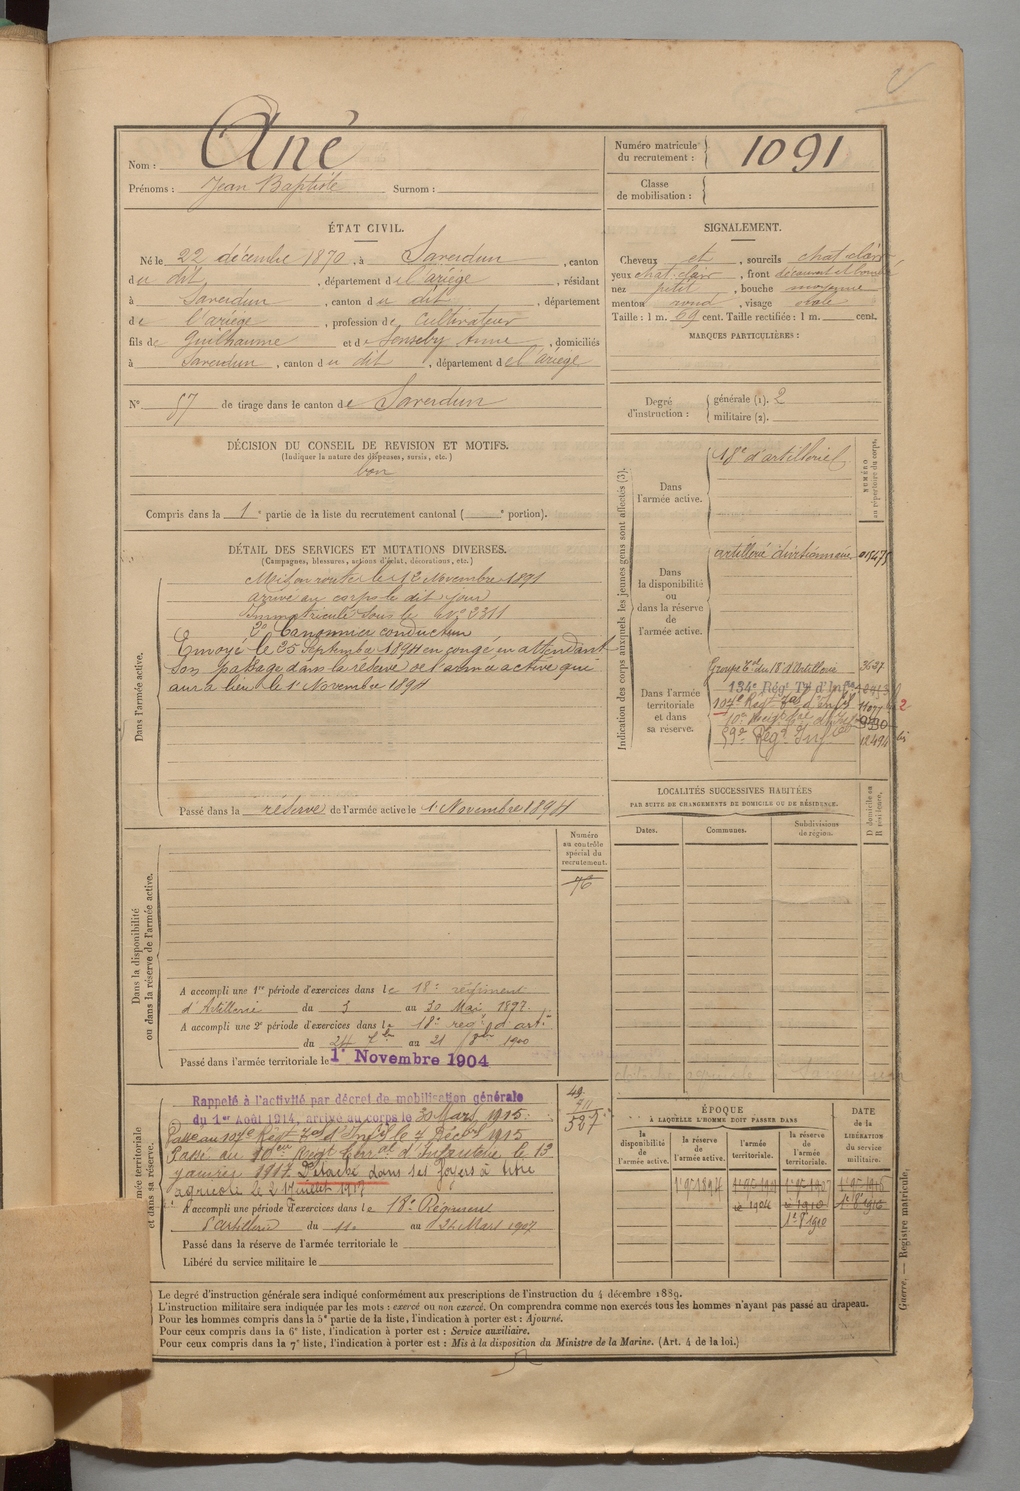 Nom : Ané
Prénoms : Jean Baptiste Surnom :
Numéro matricule du recrutement : 1091
Classe de mobilisation :
ÉTAT CIVIL.
Né le 22 décembre 1870, à Saverdun, canton
du dit, département de l'ariège, résidant
à Saverdun, canton du dit, département
de l'ariège, profession de cultivateur
fils de Guilhaume et de Anne, domiciliés
à Saverdun, canton du dit, département de l'ariège
N° 57 de tirage dans le canton de Saverdun
SIGNALEMENT.
Cheveux et, sourcils chat. clair
yeux chat. clair, front découvert et
nez petit, bouche moyenne
menton rond, visage ovale
Taille : 1 m. 69 cent. Taille rectifiée : 1 m. cent.
MARQUES PARTICULIÈRES :
Degré d'instruction : générale (1). 2
militaire (2).
DÉCISION DU CONSEIL DE REVISION ET MOTIFS.
(Indiquer la nature des dispenses, sursis, etc.)
bon
Compris dans la 1e partie de la liste du recrutement cantonal ( e portion).
DÉTAIL DES SERVICES ET MUTATIONS DIVERSES.
(Campagnes, blessures, actions d'éclat, décorations, etc.)
Dans l'armée active.
Mis en route le 12 Novembre 1891
arrivé au corps le dit jour
Immatriculé sous le N° 2311
2e Canonnier conducteur
Envoyé le 25 Septembre 1894 en congé en attendant
son passage dans la réserve de l'armée active qui
aura lieu le 1er Novembre 1894
Passé dans la réserve de l'armée active le 1 Novembre 1894
Indication des corps auxquels les jeunes gens sont affectés (3).
NUMÉRO au répertoire du corps.
Dans l'armée active.
18e d'artillerie
Dans la disponibilité ou dans la réserve de l'armée active.
artillerie divisionnaire
Dans l'armée territoriale et dans sa réserve.
Groupe Tal du 18e d'Artillerie 3627
134e Régt Tal d'Infie
107e Régt Tal d'Infie
59e Régt Infie
LOCALITÉS SUCCESSIVES HABITÉES
PAR SUITE DE CHANGEMENTS DE DOMICILE OU DE RÉSIDENCE.
Dates. Communes. Subdivisions de région. D domicile ou R résidence.
Dans la disponibilité ou dans la réserve de l'armée active.
Numéro au contrôle spécial du recrutement.
76
A accompli une 1re période d'exercices dans le 18e régiment
d'Artillerie du 3 au 30 Mai 1897.
A accompli une 2e période d'exercices dans le 18e rég. d'art.
du 24 7bre au 21 8bre 1900
Passé dans l'armée territoriale le 1er Novembre 1904
Rappelé à l'activité par décret de mobilisation générale
du 1er Août 1914, arrivé au corps le 30 Mars 1915.
Passé au 107e Régt Tal d'Infie le 7 Décbre 1915
Passé au 10e Régt Terral d'Infanterie le 13
janvier 1917. Détaché dans ses foyers à titre
agricole le 21 Juillet 1917
A accompli une période d'exercices dans le 18e Régiment
d'Artillerie du 11 au 24 Mars 1907
Passé dans la réserve de l'armée territoriale le
Libéré du service militaire le
49
527
ÉPOQUE
À LAQUELLE L'HOMME DOIT PASSER DANS
la disponibilité de l'armée active. la réserve de l'armée active. l'armée territoriale. la réserve de l'armée territoriale. DATE de la LIBÉRATION du service militaire.
1er 9bre 1894
Guerre. — Registre matricule.
Le degré d'instruction générale sera indiqué conformément aux prescriptions de l'instruction du 4 décembre 1889.
L'instruction militaire sera indiquée par les mots : exercé ou non exercé. On comprendra comme non exercés tous les hommes n'ayant pas passé au drapeau.
Pour les hommes compris dans la 5e partie de la liste, l'indication à porter est : Ajourné.
Pour ceux compris dans la 6e liste, l'indication à porter est : Service auxiliaire.
Pour ceux compris dans la 7e liste, l'indication à porter est : Mis à la disposition du Ministre de la Marine. (Art. 4 de la loi.)